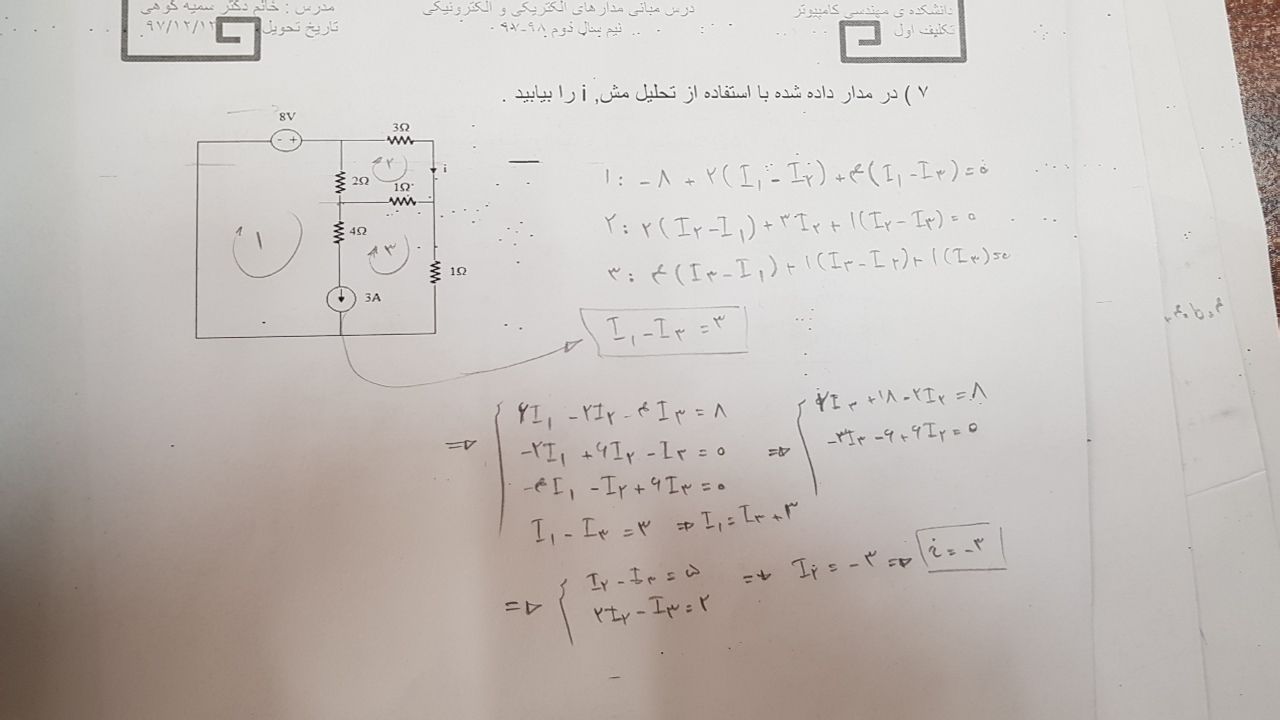 دانشکده ی مهندسی کامپیوتر
درس مبانی مدارهای الکتریکی و الکترونیکی
مدرس : خانم دکتر سمیه کوهی
تکلیف اول
نیم سال دوم ۹۸-۹۷
تاریخ تحویل ۹۷/۱۲/۱۲
۷ ) در مدار داده شده با استفاده از تحلیل مش, i را بیابید .
8V
- +
3Ω
۲
i
2Ω
1Ω
۱
4Ω
۳
1Ω
3A
۱: -۸ + ۲(I۱ - I۲) + ۴(I۱ - I۳) = ۰
۲: ۲(I۲ - I۱) + ۳I۲ + ۱(I۲ - I۳) = ۰
۳: ۴(I۳ - I۱) + ۱(I۳ - I۲) + ۱(I۳) = ۰
I۱ - I۳ = ۳
۶I۱ - ۲I۲ - ۴I۳ = ۸
-۲I۱ + ۶I۲ - I۳ = ۰
-۴I۱ - I۲ + ۶I۳ = ۰
I۱ - I۳ = ۳ ⇒ I۱ = I۳ + ۳
⇒ ۲I۳ + ۱۸ - ۲I۲ = ۸
-۳I۳ - ۶ + ۶I۲ = ۰
⇒ I۲ - I۳ = ۵
۲I۲ - I۳ = ۲
⇒ I۲ = -۳ ⇒ i = -۳